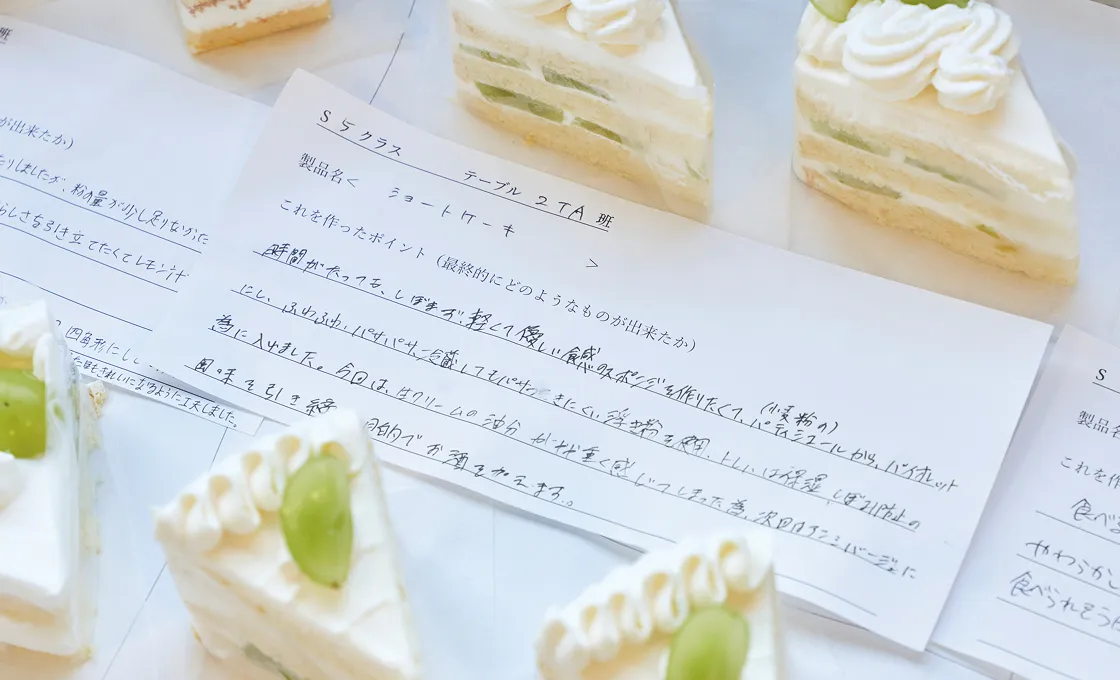 班
が出来たか)
たりしましたが、粉の量が少し足りなかった
らしさを引き立てたくてレモン汁
四角形にし
た目もきれいになるように工夫しました。
S 5 クラス テーブル 2TA 班
製品名< ショートケーキ >
これを作ったポイント (最終的にどのようなものが出来たか)
時間がたっても、しぼまず、軽くて優しい食感のスポンジを作りたくて、(小麦粉の)パティシエールから、バイオレット
にし、ふわふわ、パサパサ、冷蔵してもパサつきにくい 浮き粉を使用、トレハは保湿、しぼみ防止の
為に入れました。今回は、生クリームの油分 が 重く感じてしまった為、次回は
風味を引き 目的でお酒を加えます。
S
製品名
これを作
食べる
やわらか
食べられそう